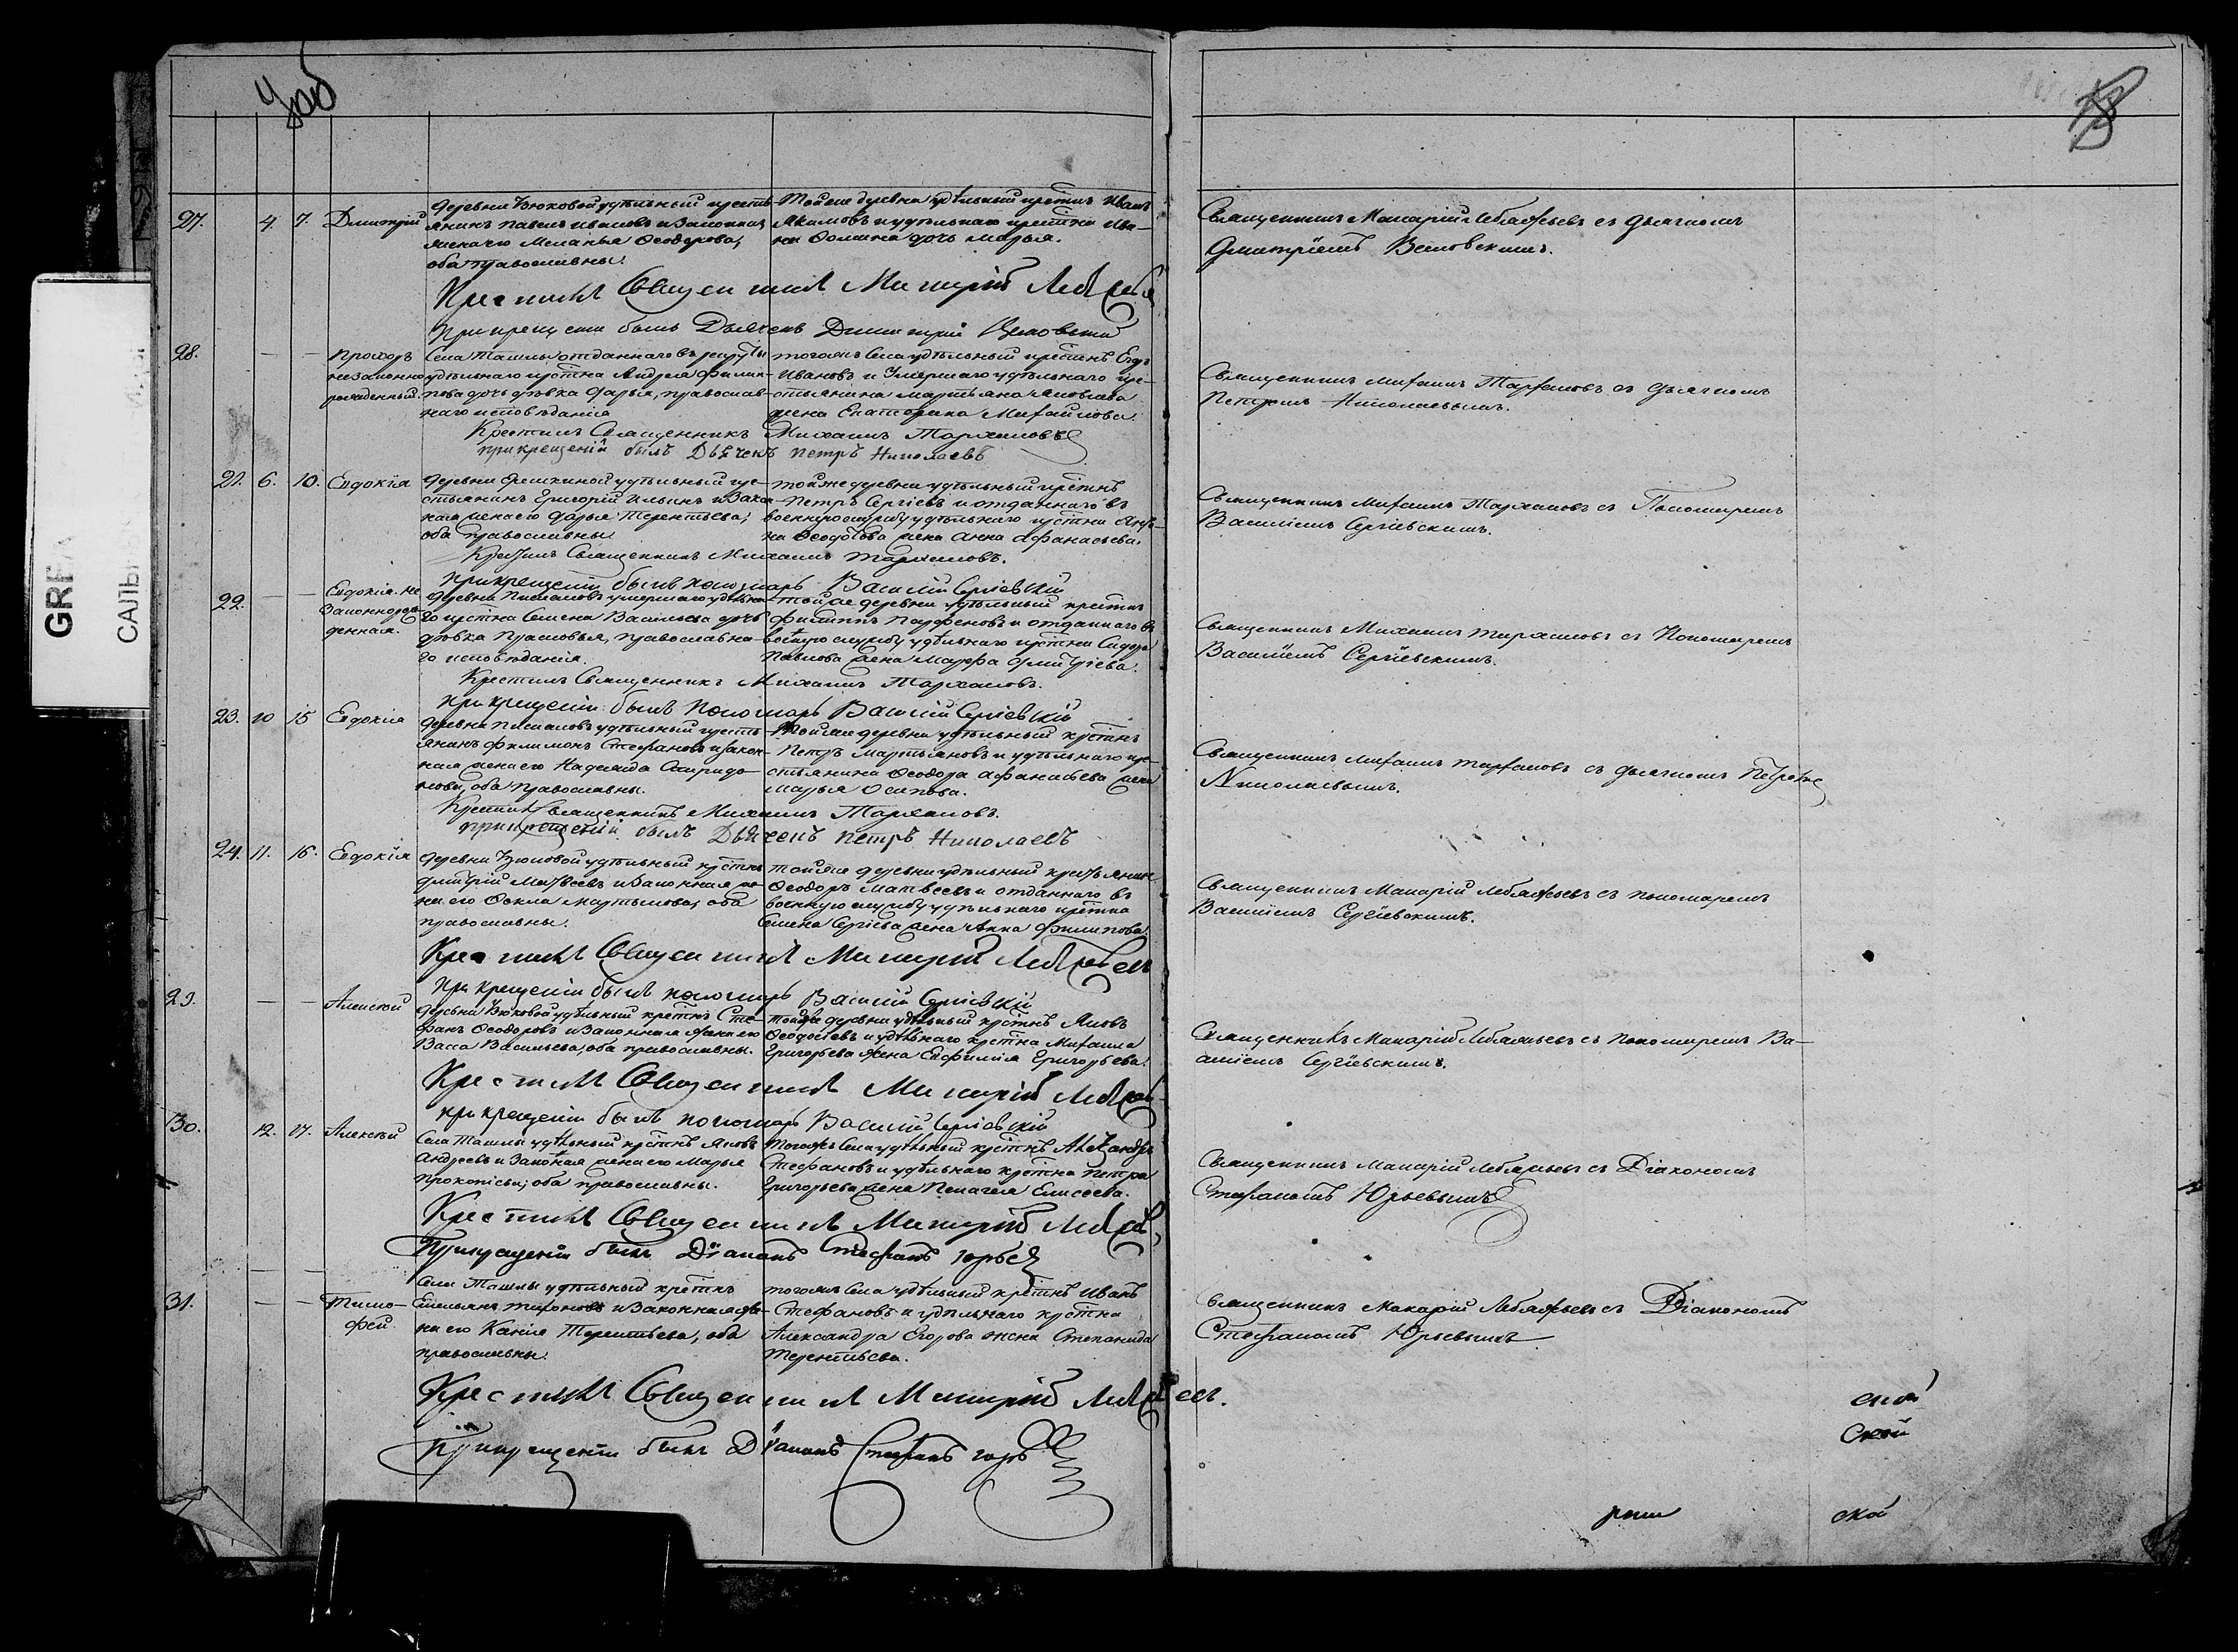 27. 4. 7. Дмитрій
Деревни Зюковой удѣльный кресть-
янинъ Павелъ Ивановъ и Законная
жена его Меланья Ѳеодорова,
оба православны.
Тойже деревни удѣльный крестнъ Иванъ
Якимовъ и удѣльнаго крестна Ива-
на Ѳомина дочь Марья.
Священникъ Макарій Лебяжьевъ съ дьячкомъ
Дмитріемъ
Крестилъ Священникъ Макарій
При крещеніи былъ Дьячекъ Димитрій
28. — — Прохоръ
незаконно
рожденный.
Села Ташлы отданнаго въ рекруты
удѣльнаго крестна Андрея Филип-
пова дочь дѣвка Дарья, православ-
наго исповѣданія
тогожъ Села удѣльный крестнъ Егоръ
Ивановъ и Умершаго удѣльнаго кре-
стьянина Мартьяна Яковлева
жена Екатерина Михайлова.
Священникъ Михаилъ Тархановъ съ дьячкомъ
Петромъ Николаевымъ.
Крестилъ Священникъ Михаилъ Тархановъ
при крещеніи былъ Дьячекъ Петръ Николаевъ
21. 6. 10. Евдокія
Деревни удѣльный кре-
стьянинъ Григорій Ильинъ и Зако-
нная жена его Дарья Терентьева;
оба православны
тойже деревни удѣльный крестнъ
Петръ Сергіевъ и отданнаго въ
военную службу удѣльнаго крестна
Ѳеодотова жена Анна Афанасьева.
Священникъ Михаилъ Тархановъ съ Пономаремъ
Василіемъ Сергіевскимъ.
Крестилъ Священникъ Михаилъ Тархановъ.
При крещеніи былъ пономарь Василій Сергіевскій
22. — — Евдокія не
Законнорож-
денная.
Деревни умершаго удѣльна-
го крестна Семена Васильева дочь
дѣвка Прасковья, православна-
го исповѣданія.
тойже деревни удѣльный крестнъ
Филиппъ Парфеновъ и отданнаго въ
военную службу удѣльнаго крестна Сидора
Павлова жена Марфа Дмитріева.
Священникъ Михаилъ Тархановъ съ Пономаремъ
Василіемъ Сергіевскимъ.
Крестилъ Священникъ Михаилъ Тархановъ.
При крещеніи былъ Пономарь Василій Сергіевскій
23. 10 15 Евдокія
Деревни удѣльный кресть-
янинъ Филимонъ Стефановъ и закон-
ная жена его Надежда Спиридо-
нова, оба православны.
Тойже деревни удѣльный крестнъ
Петръ Мартьяновъ и удѣльнаго кре-
стьянина Ѳеодора Афанасьева жена
Марья Осипова.
Священникъ Михаилъ Тархановъ съ дьячкомъ Петромъ
Николаевымъ.
Крестилъ Священникъ Михаилъ Тархановъ.
при крещеніи былъ Дьячекъ Петръ Николаевъ
24. 11. 16. Евдокія
Деревни Зюковой удѣльный крестнъ
Дмитрій Матвеевъ и Законная же-
на его Ѳекла Мартынова, оба
православны.
тойже деревни удѣльный крестьянин
Ѳеодоръ Матвеевъ и отданнаго въ
военную службу удѣльнаго крестна
Семена Сергіева жена Анна Филипова.
Священникъ Макарій Лебяжьевъ съ пономаремъ
Василіемъ Сергіевскимъ.
Крестилъ Священникъ Макарій Лебяжьевъ
При крещеніи былъ пономарь Василій Сергіевскій
29. — — Алексѣй
Деревни Зюковой удѣльный крестнъ Сте-
фанъ Ѳеодоровъ и Законная жена его
Васса Васильева, оба православны.
тойже деревни удѣльный крестнъ Яковъ
Ѳеодосіевъ и удѣльнаго крестна Михаила
Григорьева жена Евфимія Григорьева.
Священникъ Макарій Лебяжьевъ съ Пономаремъ Ва-
силіемъ Сергіевскимъ.
Крестилъ Священникъ Макарій
при крещеніи былъ пономарь Василій Сергіевскій
30. 12. 17. Алексѣй
Села Ташлы удѣльный крестнъ Яковъ
Андреевъ и Законная жена его Марья
Прокопьева; оба православны.
Тогожъ Села удѣльный крестнъ Александръ
Стефановъ и удѣльнаго крестна Петра
Григорьева жена Пелагея Елисеева.
Священникъ Макарій Лебяжьевъ съ Діакономъ
Стефаномъ Юрьевымъ
Крестилъ Священникъ Макарій
При крещеніи былъ Діаконъ Стефанъ Юрьевъ
31. — — Тимо-
фей
Села Ташлы удѣльный крестнъ
Емельянъ Тихоновъ и Законная же-
на его Терентьева, оба
православны.
тогожъ Села удѣльный крестнъ Иванъ
Стефановъ и удѣльнаго крестна
Александра Егорова жена Степанида
Терентьева.
Священникъ Макарій Лебяжьевъ съ Діакономъ
Стефаномъ Юрьевымъ
Крестилъ Священникъ Макарій Лебяжьевъ.
При крещеніи былъ Діаконъ Стефанъ
ской
ска